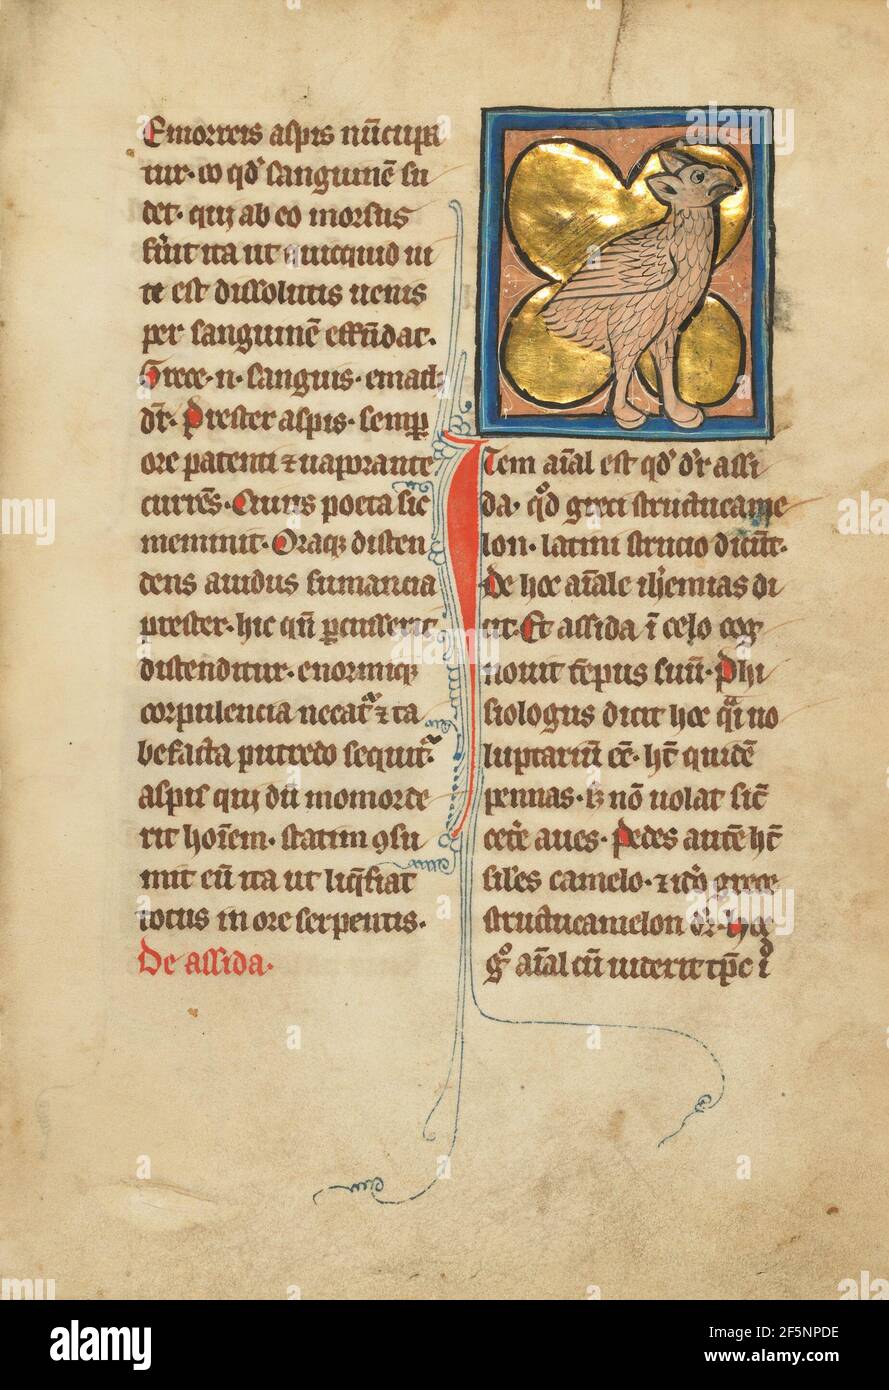 Emorreis aspis nūcupa
tur· eo qd' sanguinē su
det· qui ab eo morsus
fu'it ita ut quicquid ui
te est dissolutis uenis
per sanguinē effūdat·
Grece·n· sanguis· emath
dr̄· Prester aspis· semꝑ
ore patenti ⁊ uaporante
currēs· Cuius poeta sic
meminit· Oraqꝫ disten
dens auidus fumancia
prester· hic qn̄ ꝑcusserit
distenditur· enormiqꝫ
corpulencia necat'· ⁊ ta
befacta putredo sequit'·
aspis qui dū momorde
rit hoīem· statim ꝯsu
mit eū ita ut liq̄fiat
totus in ore serpentis·
De assida·
Item aīal est qd' dr̄ assi
da· qd' greci structucame
lon· latini strucio dicūt·
De hoc aīale iheremias di
cit· Et assida ī celo cog
nouit tēpus suū· Phi
siologus dicit hoc qᵃi uo
luptariū eē· ht̄ quidē
pennas· ꝫ nō uolat sic̄
cet'e aues· Pedes autē ht̄
sil'es camelo· ⁊ ido grece
structucamelon dr̄· hoc
gͦ aīal cū uiderit tp̄c ī
alamy
alamy
Image ID: 2F5NPDE
www.alamy.com